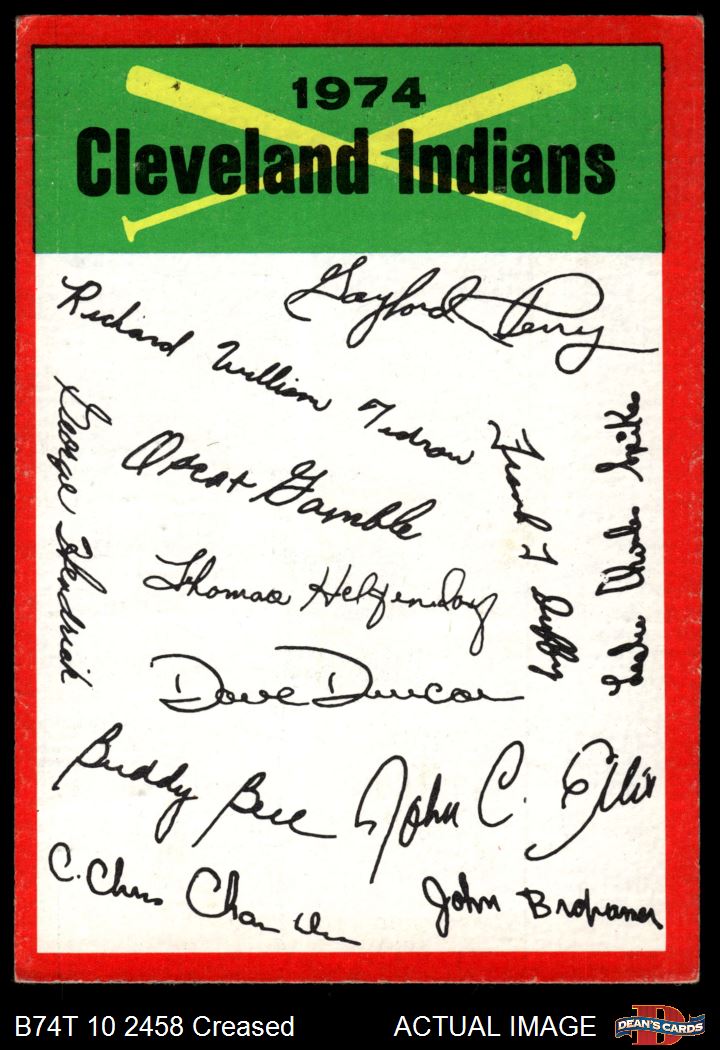 1974
Cleveland Indians
Gaylord Perry
Richard William Tidrow
George Hendrick
Oscar Gamble
Frank T Duffy
Leslie Charles Spikes
Thomas Hilgendorf
Dave Duncan
Buddy Bell
John C. Ellis
C. Chris Cham
John Brohamer
B74T 10 2458 Creased
ACTUAL IMAGE
DEAN'S CARDS